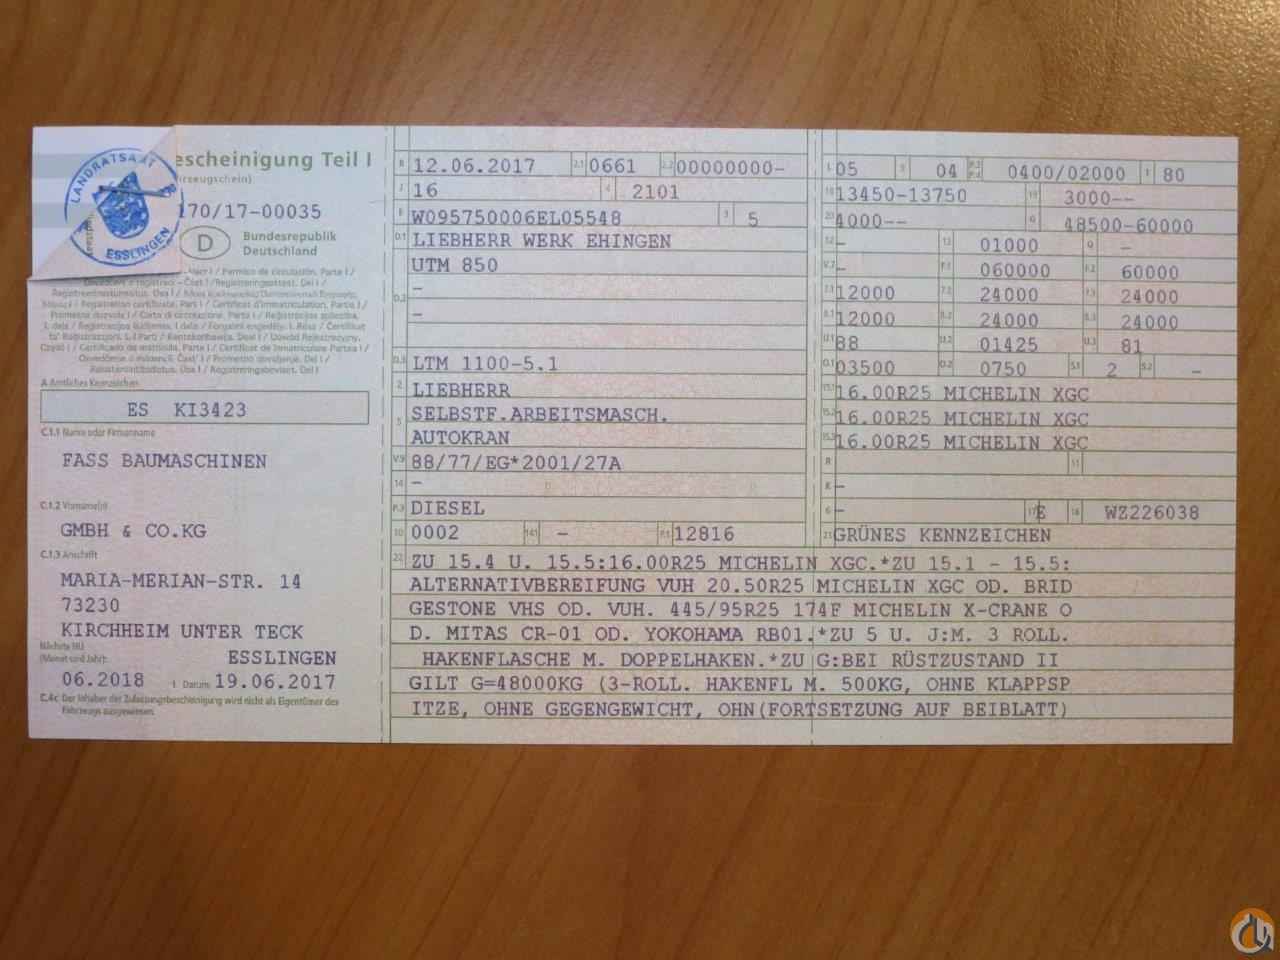 LANDRATSAMT
ESSLINGEN
escheinigung Teil I
170/17-00035
D
Bundesrepublik
Deutschland
A Amtliches Kennzeichen
ES KI3423
C.1.1 Name oder Firmenname
FASS BAUMASCHINEN
C.1.2 Vorname(n)
GMBH & CO.KG
C.1.3 Anschrift
MARIA-MERIAN-STR. 14
73230
KIRCHHEIM UNTER TECK
Nächste HU
(Monat und Jahr)
ESSLINGEN
06.2018 I Datum 19.06.2017
C.4c Der Inhaber der Zulassungsbescheinigung wird nicht als Eigentümer des
Fahrzeugs ausgewiesen.
B 12.06.2017 2.1 0661 2.2 00000000-
J 16 4 2101
E W095750006EL05548 3 5
D.1 LIEBHERR WERK EHINGEN
UTM 850
-
D.2
-
D.3 LTM 1100-5.1
2 LIEBHERR
5 SELBSTF.ARBEITSMASCH.
AUTOKRAN
V.9 88/77/EG*2001/27A
14 -
P.3 DIESEL
10 0002 14.1 - P.1 12816
L 05 9 04 P.2 P.4 0400/02000 T 80
18 13450-13750 19 3000--
20 4000-- G 48500-60000
12 - 13 01000 Q -
V.7 - F.1 060000 F.2 60000
7.1 12000 7.2 24000 7.3 24000
8.1 12000 8.2 24000 8.3 24000
U.1 88 U.2 01425 U.3 81
O.1 03500 O.2 0750 S.1 2 S.2 -
15.1 16.00R25 MICHELIN XGC
15.2 16.00R25 MICHELIN XGC
15.3 16.00R25 MICHELIN XGC
R 11
K -
6 - 17 E 16 WZ226038
21 GRÜNES KENNZEICHEN
22 ZU 15.4 U. 15.5:16.00R25 MICHELIN XGC.*ZU 15.1 - 15.5:
ALTERNATIVBEREIFUNG VUH 20.50R25 MICHELIN XGC OD. BRID
GESTONE VHS OD. VUH. 445/95R25 174F MICHELIN X-CRANE O
D. MITAS CR-01 OD. YOKOHAMA RB01.*ZU 5 U. J:M. 3 ROLL.
HAKENFLASCHE M. DOPPELHAKEN.*ZU G:BEI RÜSTZUSTAND II
GILT G=48000KG (3-ROLL. HAKENFL M. 500KG, OHNE KLAPPSP
ITZE, OHNE GEGENGEWICHT, OHN(FORTSETZUNG AUF BEIBLATT)